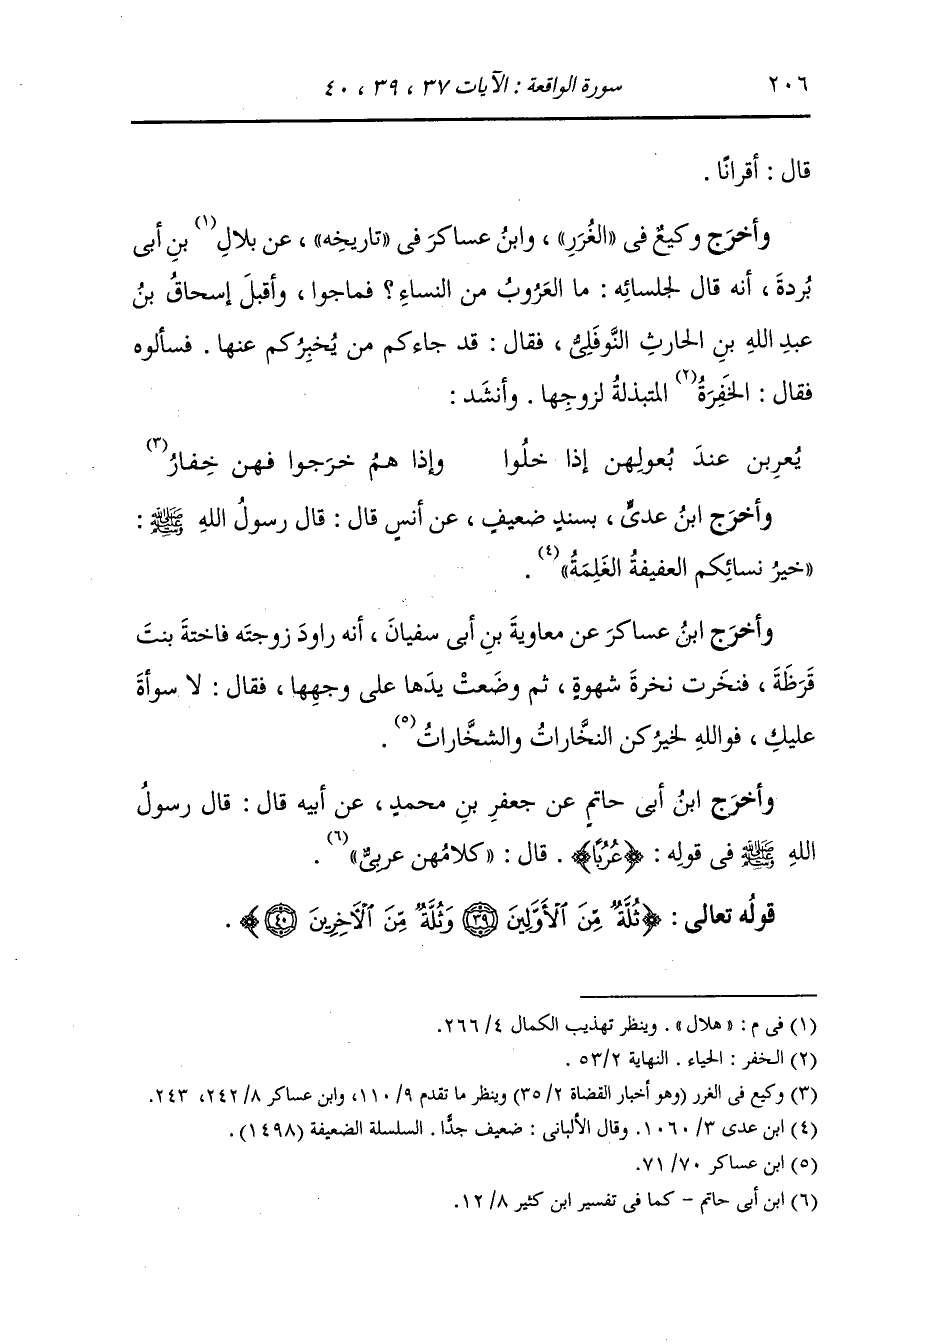 ٢٠٦ سورة الواقعة : الآيات ٣٧ ، ٣٩ ، ٤٠
قال : أقرانًا .
وأخرَج وكيعٌ فى «الغُرَرِ» ، وابنُ عساكرَ فى «تاريخِه» ، عن بلالِ(١) بنِ أبى
بُردةَ ، أنه قال لجلسائِه : ما العَرُوبُ من النساءِ ؟ فماجوا ، وأقبلَ إسحاقُ بنُ
عبدِ اللهِ بنِ الحارثِ النَّوفَلِىُّ ، فقال : قد جاءكم من يُخبِرُكم عنها . فسألوه
فقال : الخَفِرَةُ(٢) المتبذلةُ لزوجِها . وأنشَد :
يُعرِبن عندَ بُعولِهن إذا خلُوا وإذا همُ خرَجوا فهن خِفارُ(٣)
وأخرَج ابنُ عدىٍّ ، بسندٍ ضعيفٍ ، عن أنسٍ قال : قال رسولُ اللهِ ﷺ :
«خيرُ نسائِكم العفيفةُ الغَلِمَةُ»(٤) .
وأخرَج ابنُ عساكرَ عن معاويةَ بنِ أبى سفيانَ ، أنه راودَ زوجتَه فاختةَ بنتَ
قَرَظَةَ ، فنخَرت نخرةَ شهوةٍ ، ثم وضَعتْ يدَها على وجهِها ، فقال : لا سوأةَ
عليكِ ، فواللهِ لخيرُكن النخَّاراتُ والشخَّاراتُ(٥) .
وأخرَج ابنُ أبى حاتمٍ عن جعفرِ بنِ محمدٍ ، عن أبيه قال : قال رسولُ
اللهِ ﷺ فى قولِه : ﴿عُرُبًا﴾ . قال : «كلامُهن عربىٌّ»(٦) .
قولُه تعالى : ﴿ثُلَّةٌ مِّنَ ٱلْأَوَّلِينَ ٣٩ وَثُلَّةٌ مِّنَ ٱلْآخِرِينَ ٤٠﴾ .
(١) فى م : «هلال» . وينظر تهذيب الكمال ٤/ ٢٦٦.
(٢) الخفر : الحياء . النهاية ٥٣/٢ .
(٣) وكيع فى الغرر (وهو أخبار القضاة ٢/ ٣٥) وينظر ما تقدم ٩/ ١١٠، وابن عساكر ٨/ ٢٤٢، ٢٤٣.
(٤) ابن عدى ٣/ ١٠٦٠. وقال الألبانى : ضعيف جدًّا . السلسلة الضعيفة (١٤٩٨).
(٥) ابن عساكر ٧٠/ ٧١.
(٦) ابن أبى حاتم - كما فى تفسير ابن كثير ٨/ ١٢.